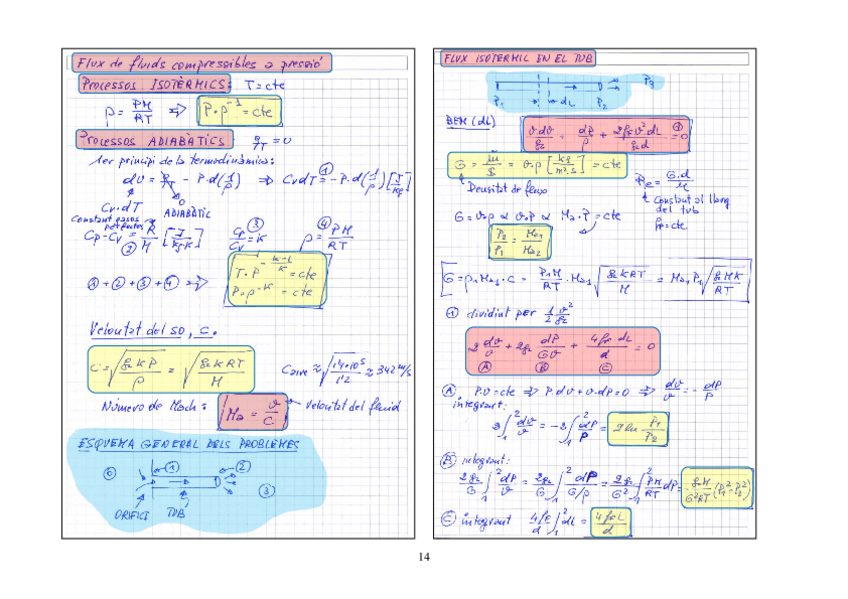 Flux de fluids compressibles a pressió
Processos ISOTÈRMICS: T = cte
ρ = PM/RT ⇒ P·ρ⁻¹ = cte
Processos ADIABÀTICS qT = 0
1er principi de la termodinàmica:
dU = qT - P·d(1/ρ) ⇒ CvdT = -P·d(1/ρ) [J/kg] ①
Cv·dT 0
ADIABÀTIC
Constant gasos perfectes
Cp - Cv = R/M [J/kg·K] ② Cp/Cv = K ③ ρ = PM/RT ④
①+②+③+④ ⇒ T·P^(-(K-1)/K) = cte
P·ρ^-K = cte
Velocitat del so, c.
c = √(gc K P/ρ) = √(gc K RT/M) Caire ≈ √(1'4·10⁵/1'2) ≈ 342 m/s
Número de Mach: Ma = v/c ← Velocitat del fluid
ESQUEMA GENERAL DELS PROBLEMES
⓪ ① ② ③
ORIFICI TUB
FLUX ISOTERMIC EN EL TUB
P₁ dL P₂ P₃
BEM (dL) v dv/gc + dP/ρ + 2fF v² dL/gc d = 0 ①
G = m/S = v·ρ [kg/m²·s] = cte
Densitat de fluxe Re = G·d/μ
constant al llarg del tub
fF = cte
G = v·ρ ∝ v·P ∝ Ma·P = cte
P₂/P₁ = Ma₁/Ma₂
G = ρ₁Ma₁·c = P₁M/RT · Ma₁ √(gc K RT/M) = Ma₁P₁ √(gc M K/RT)
① dividint per 1/2 v²/gc
2 dv/v + 2gc dP/Gv + 4fF dL/d = 0
Ⓐ Ⓑ Ⓒ
Ⓐ P·v = cte ⇒ P·dv + v·dP = 0 ⇒ dv/v = - dP/P
integrant:
2∫₁² dv/v = -2∫₁² dP/P = 2 ln P₁/P₂
Ⓑ integrant:
2gc/G ∫₁² dP/v = 2gc/G ∫₁² dP/G/ρ = 2gc/G² ∫₁² PM/RT dP = - gc M/G²RT (P₁²-P₂²)
Ⓒ integrant 4fF/d ∫₁² dL = 4fF L/d
14